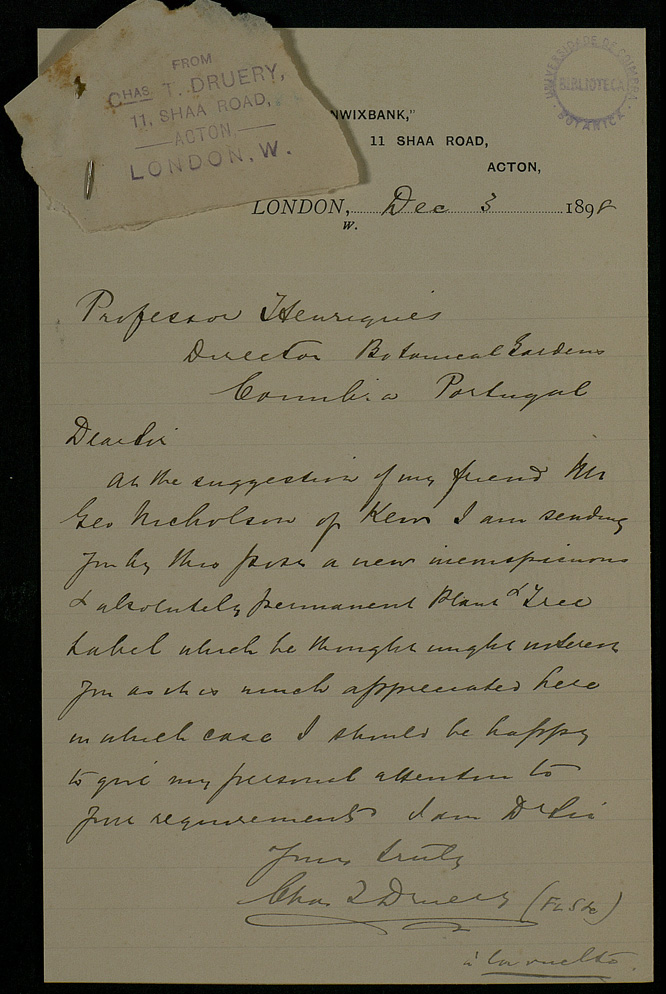 FROM
CHAS. T. DRUERY,
11, SHAA ROAD,
ACTON,
LONDON, W.
UNIVERSIDADE DE COIMBRA
BIBLIOTECA
BOTANICA
NWIXBANK,"
11 SHAA ROAD,
ACTON,
LONDON, Dec 3 1898
W.
Professor Henriques
Director Botanical Gardens
Coimbra Portugal
Dear Sir
At the suggestion of my friend Mr
Geo Nicholson of Kew I am sending
you by this post a new inconspicuous
& absolutely permanent Plant & Tree
Label which he thought might interest
you as it is much appreciated here
in which case I should be happy
to give my personal attention to
your requirements I am Dr Sir
Yours truly
Chas T Druery (FLS &c)
à la vuelta.